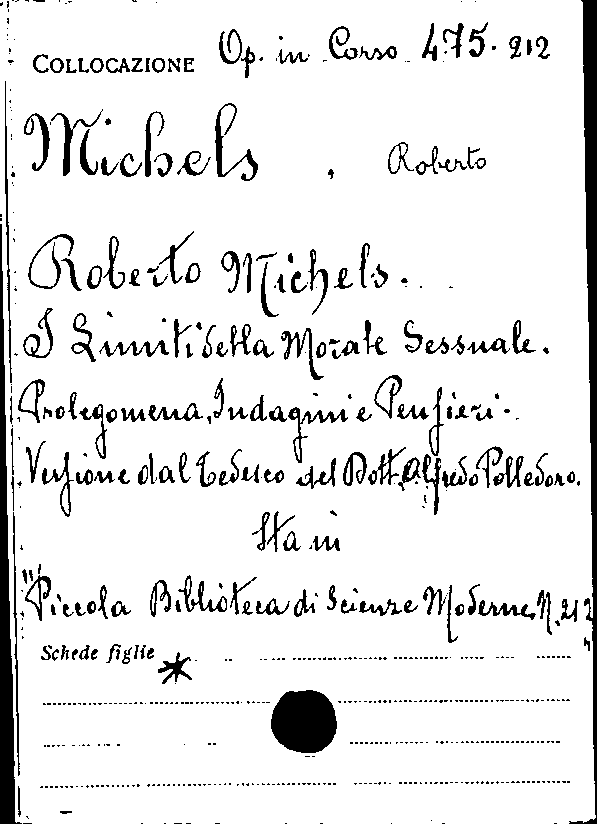 COLLOCAZIONE Op. in Corso 475. 212
Michels , Roberto
Roberto Michels.
I Limiti della Morale Sessuale.
Prolegomena, Indagini e Pensieri.
Versione dal Tedesco del Dott. Alfredo Polledoro.
Sta in
"Piccola Biblioteca di Scienze Moderne, N. 212"
Schede figlie *